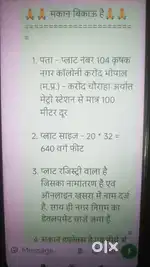 🙏🙏 मकान बिकाऊ है🙏🙏
=======================
=
1. पता - प्लाट नंबर 104 कृषक
नगर कॉलोनी करोंद भोपाल
(म.प्र.) - करोंद चौराहा अर्थात
मेट्रो स्टेशन से मात्र 100
मीटर दूर
2. प्लाट साइज - 20 * 32 =
640 वर्ग फीट
3. प्लाट रजिस्ट्री वाला है
जिसका नामांतरण है एवं
ऑनलाइन खसरा में नाम दर्ज
है, साथ ही नगर निगम का
डेवलपमेंट चार्ज जमा है
4. मकान
Message
OLX